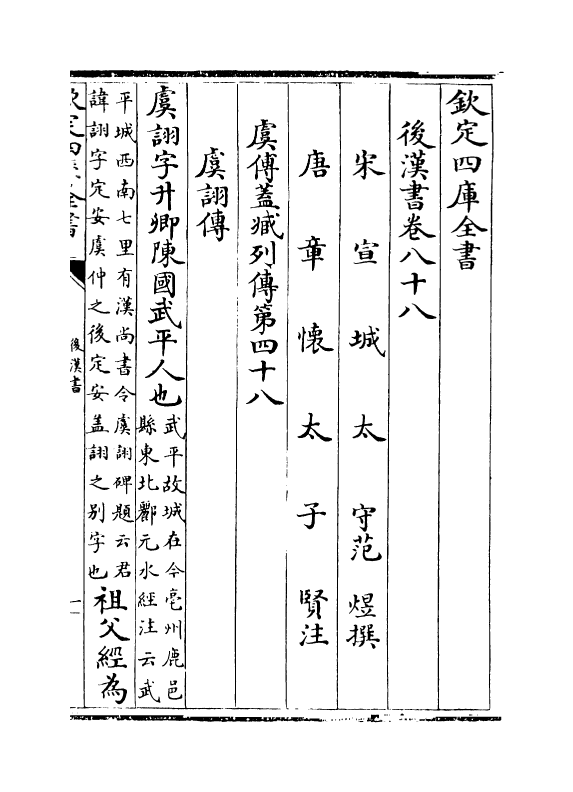 欽定四庫全書
後漢書卷八十八
宋宣城太守范煜撰
唐章懷太子賢注
虞傅蓋臧列傳第四十八
虞詡傳
虞詡字升卿陳國武平人也
武平故城在今亳州鹿邑
縣東北酈元水經注云武
平城西南七里有漢尚書令虞詡碑題云君
諱詡字定安虞仲之後定安盖詡之别字也
祖父經為
欽定四庫全書
後漢書
一